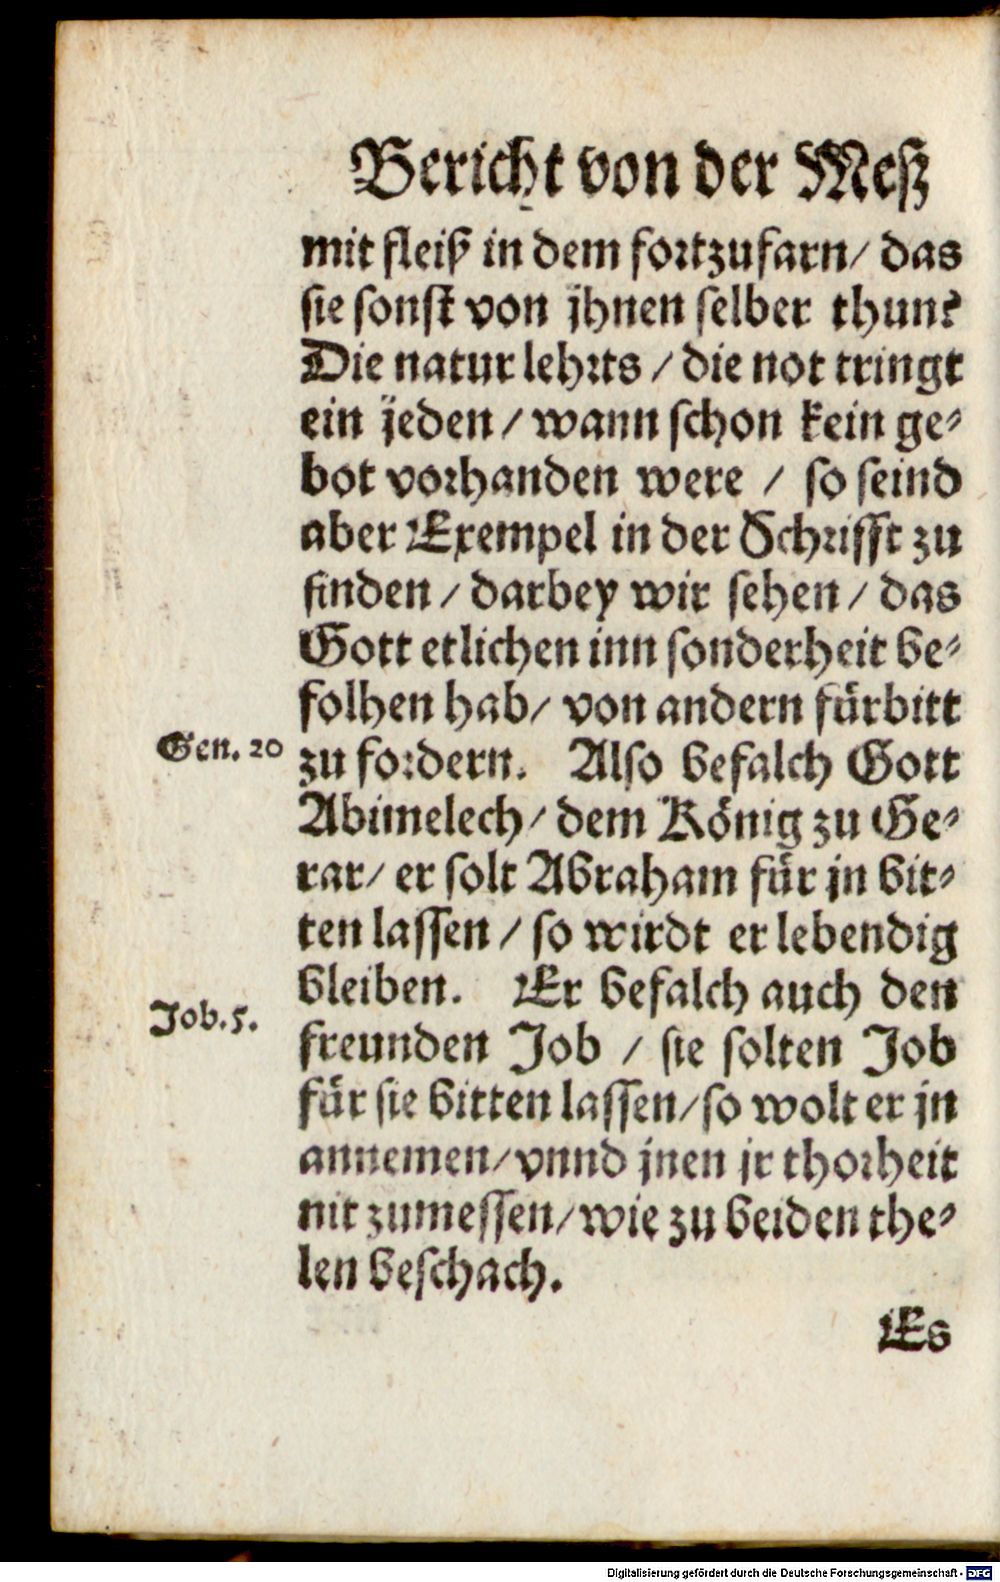 Bericht von der Meß
mit fleiß in dem fortzufarn/ das
sie sonst von jhnen selber thun?
Die natur lehrts / die not tringt
ein jeden / wann schon kein ge-
bot vorhanden were / so seind
aber Exempel in der Schrifft zu
finden / darbey wir sehen / das
Gott etlichen inn sonderheit be-
folhen hab/ von andern fürbitt
Gen. 20
zu fordern. Also befalch Gott
Abimelech/ dem König zu Ge-
rar/ er solt Abraham für jn bit-
ten lassen / so wirdt er lebendig
bleiben. Er befalch auch den
Job. 5.
freunden Job / sie solten Job
für sie bitten lassen/so wolt er jn
annemen/vnnd jnen jr thorheit
nit zumessen/wie zu beiden the-
len beschach.
Es
Digitalisierung gefördert durch die Deutsche Forschungsgemeinschaft - DFG